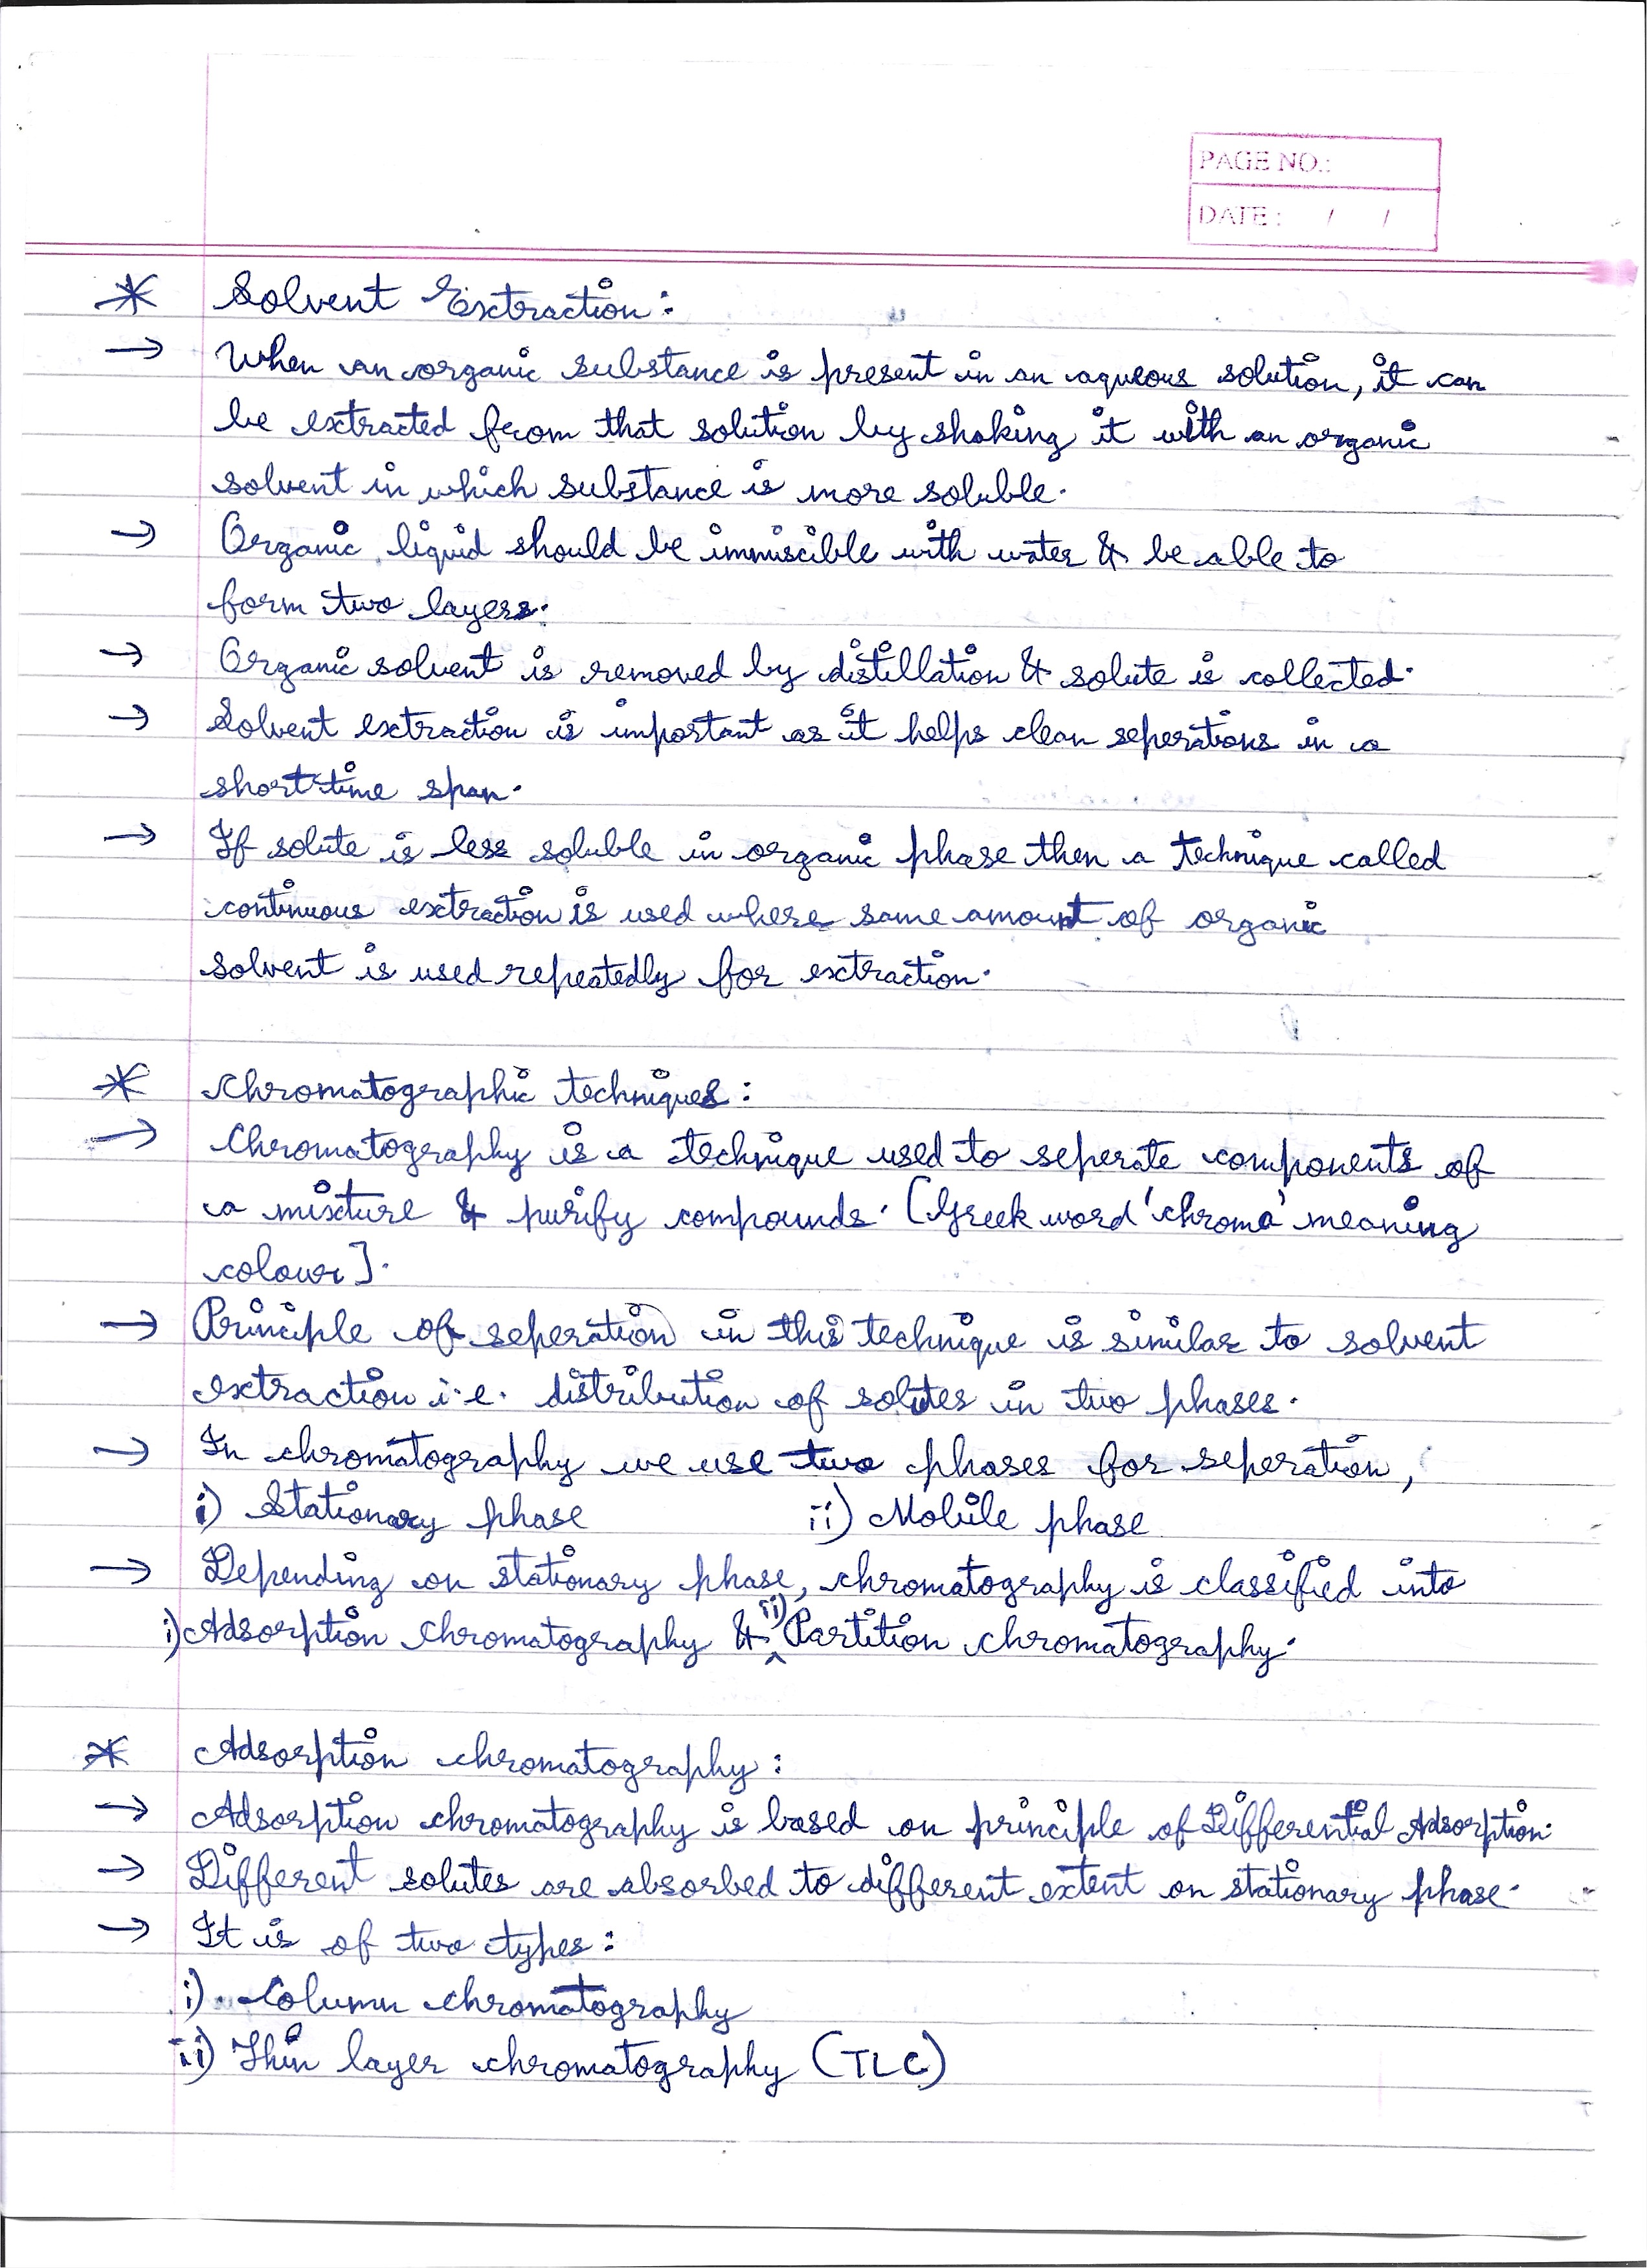 PAGE NO.:
DATE : / /
* Solvent Extraction:
→ When an organic substance is present in an aqueous solution, it can
be extracted from that solution by shaking it with an organic
solvent in which substance is more soluble.
→ Organic liquid should be immiscible with water & be able to
form two layers.
→ Organic solvent is removed by distillation & solute is collected.
→ Solvent extraction is important as it helps clean seperations in a
short time span.
→ If solute is less soluble in organic phase then a technique called
continuous extraction is used where same amount of organic
solvent is used repeatedly for extraction.
* Chromatographic techniques:
→ Chromatography is a technique used to seperate components of
a mixture & purify compounds. [Greek word 'chroma' meaning
colour].
→ Principle of seperation in this technique is similar to solvent
extraction i.e. distribution of solutes in two phases.
→ In chromatography we use two phases for seperation,
i) Stationary phase ii) Mobile phase
→ Depending on stationary phase, chromatography is classified into
i) Adsorption chromatography & ii) Partition chromatography.
* Adsorption chromatography:
→ Adsorption chromatography is based on principle of Differential Adsorption.
→ Different solutes are absorbed to different extent on stationary phase.
→ It is of two types:
i). Column chromatography
ii) Thin layer chromatography (TLC)